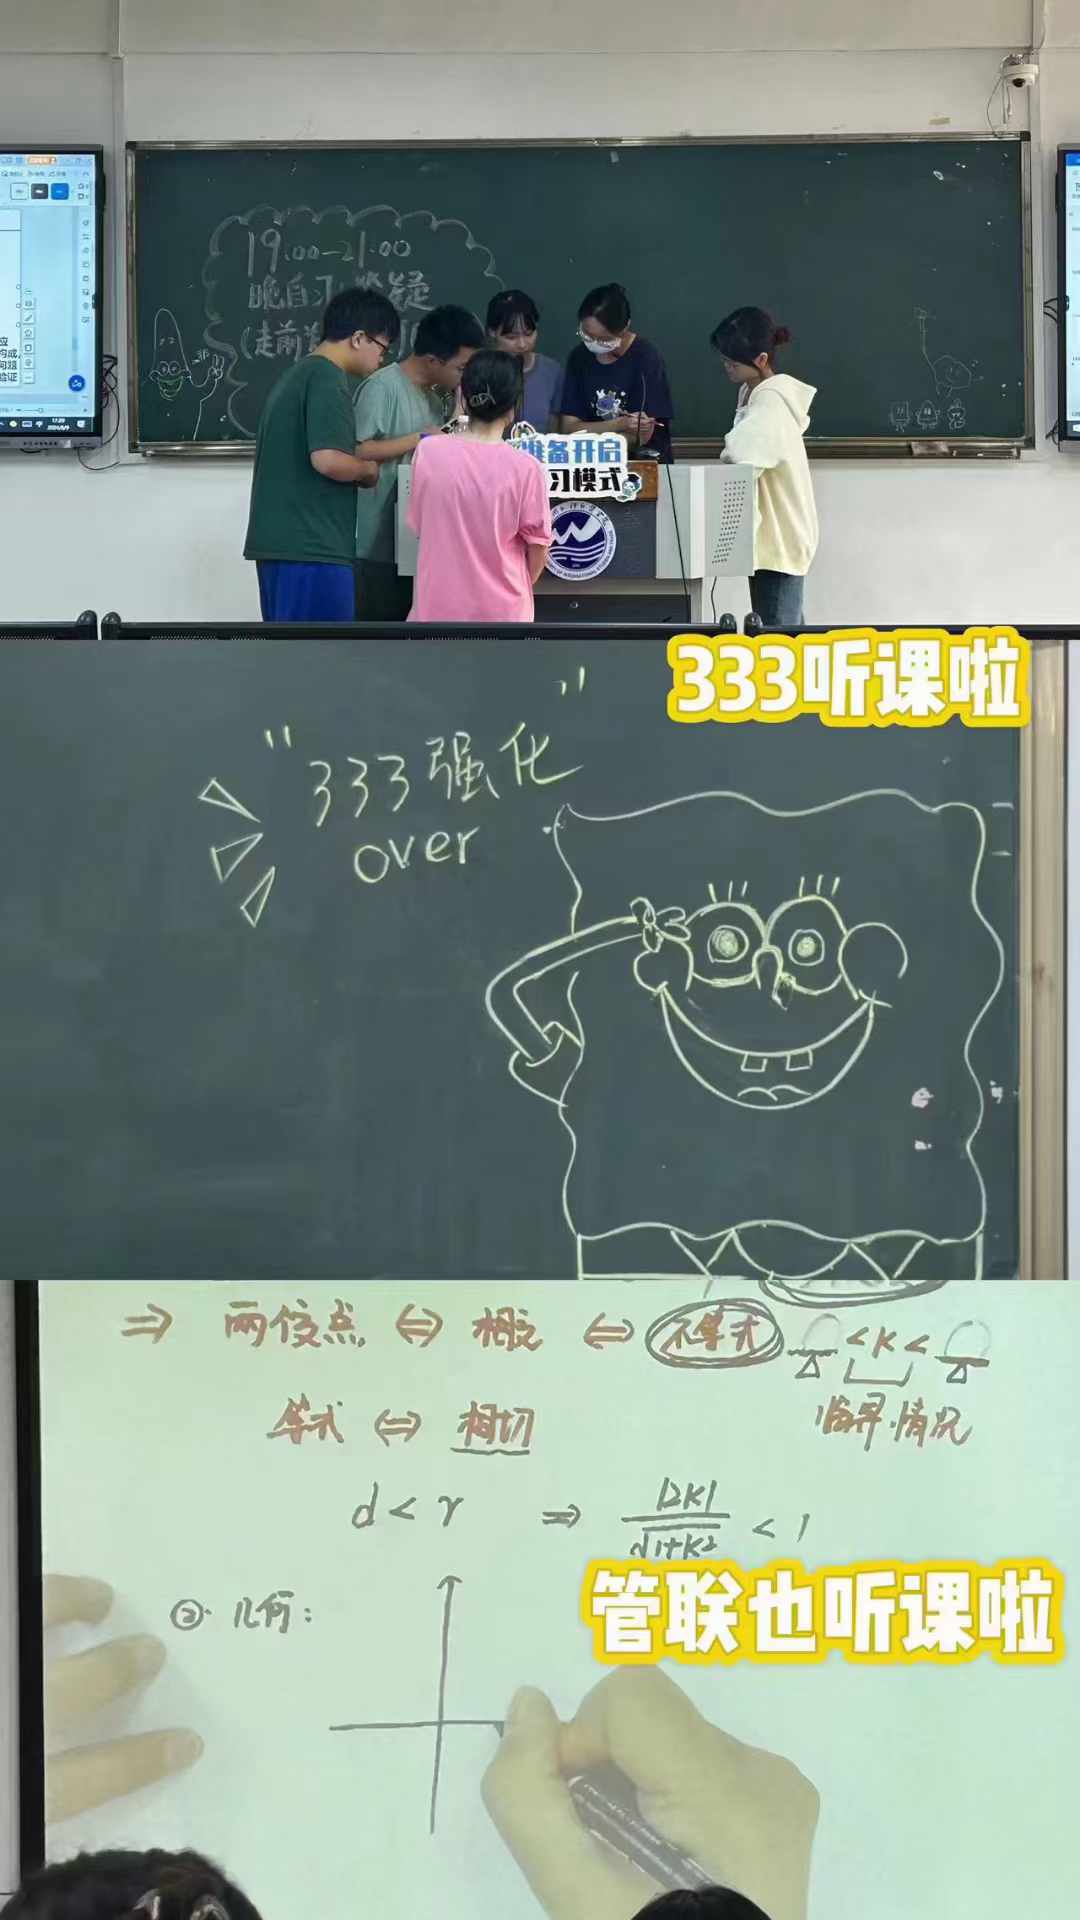 19:00-21:00
晚自习:答疑
准备开启
习模式
333听课啦
"333强化"
over
⇒ 两交点 ⇔ 相交 ⇔ 不等式 <K<
等式 ⇔ 相切
临界情况
d < r ⇒ |2K|/√1+K² < 1
②. 几何:
管联也听课啦